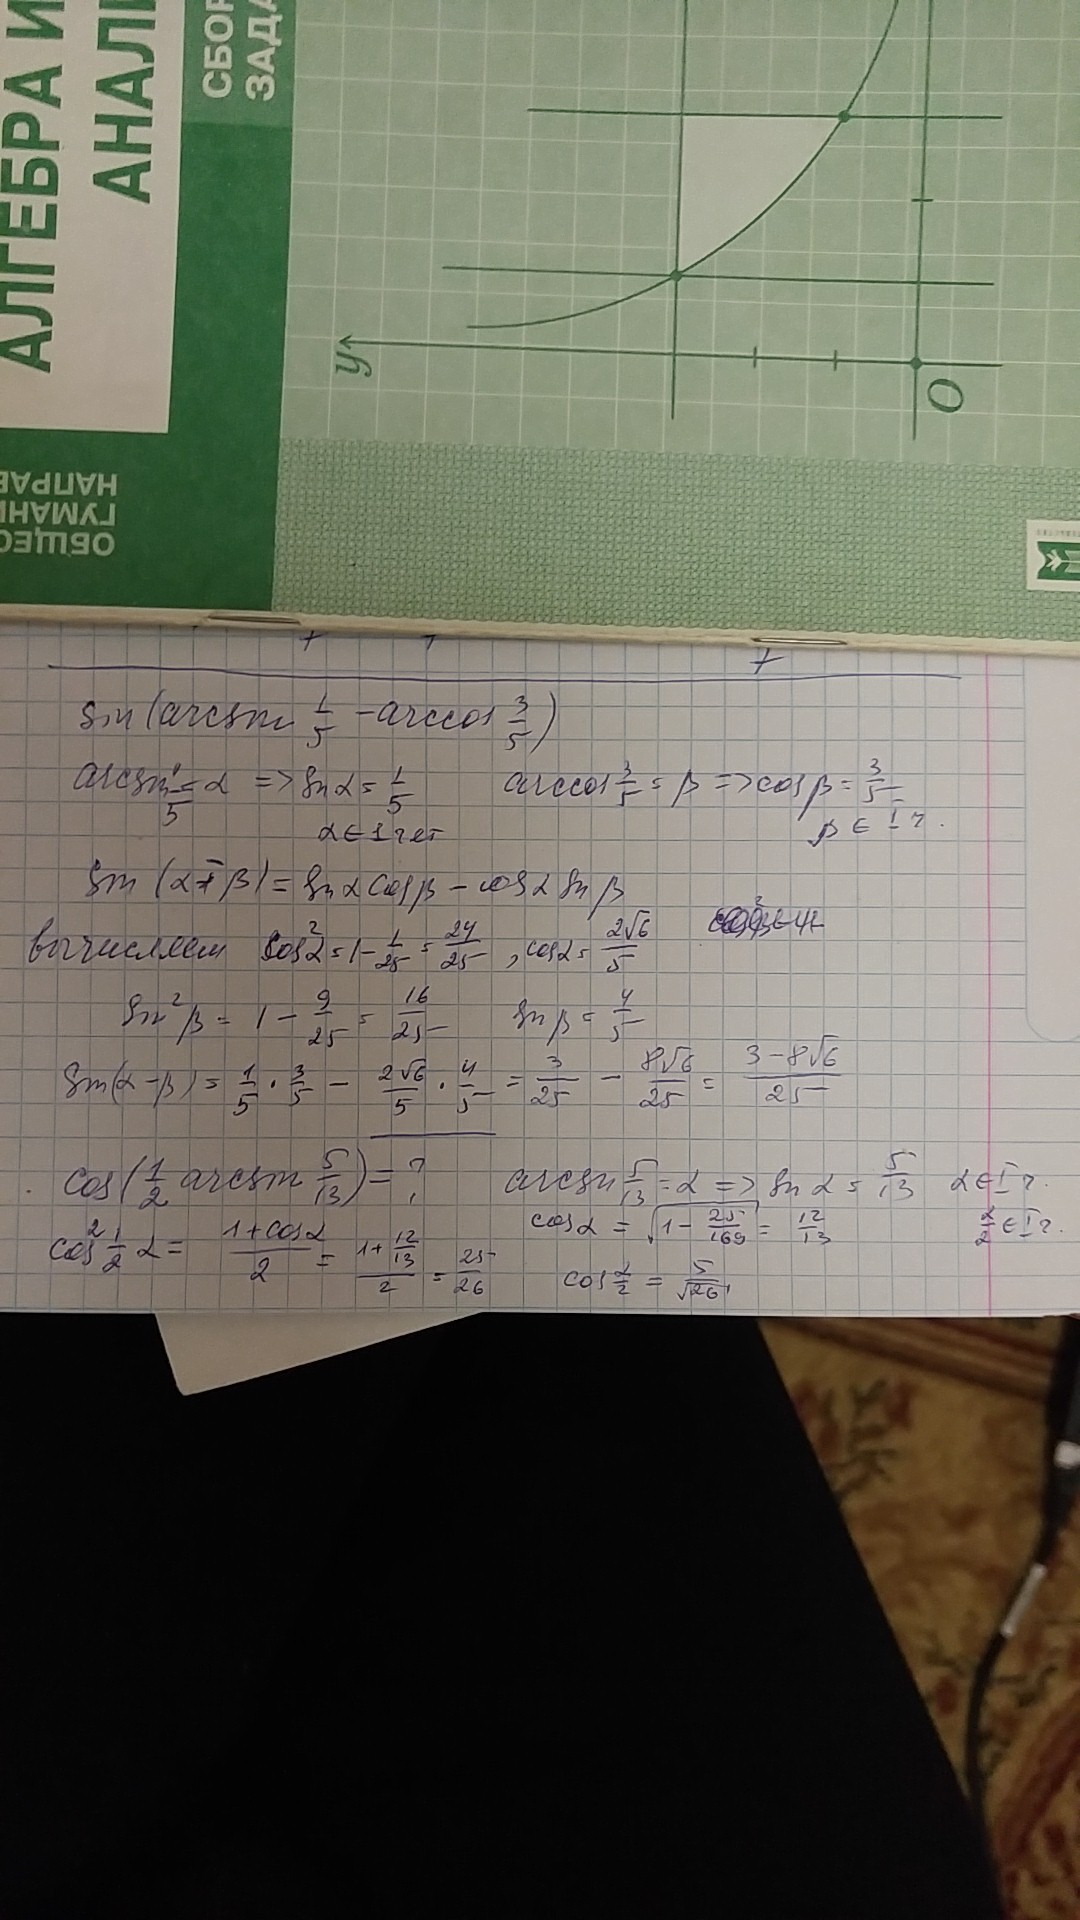 АЛГЕБРА И
АНАЛИ
СБОР
ЗАДА
y
O
ОБЩЕС
ГУМАНИ
НАПРАВ
sin(arcsin 1/5 - arccos 3/5)
arcsin 1/5 = α => sin α = 1/5 arccos 3/5 = β => cos β = 3/5
α ∈ 1 чет β ∈ I ч.
sin (α - β) = sin α cos β - cos α sin β
вычисляем cos²α = 1 - 1/25 = 24/25 , cos α = 2√6/5
sin²β = 1 - 9/25 = 16/25 sin β = 4/5
sin(α - β) = 1/5 · 3/5 - 2√6/5 · 4/5 = 3/25 - 8√6/25 = (3 - 8√6)/25
cos(1/2 arcsin 5/13) = ? arcsin 5/13 = α => sin α = 5/13 α ∈ I ч.
cos² 1/2 α = (1 + cos α)/2 = (1 + 12/13)/2 = 25/26 cos α = √(1 - 25/169) = 12/13 α/2 ∈ I ч.
cos α/2 = 5/√26